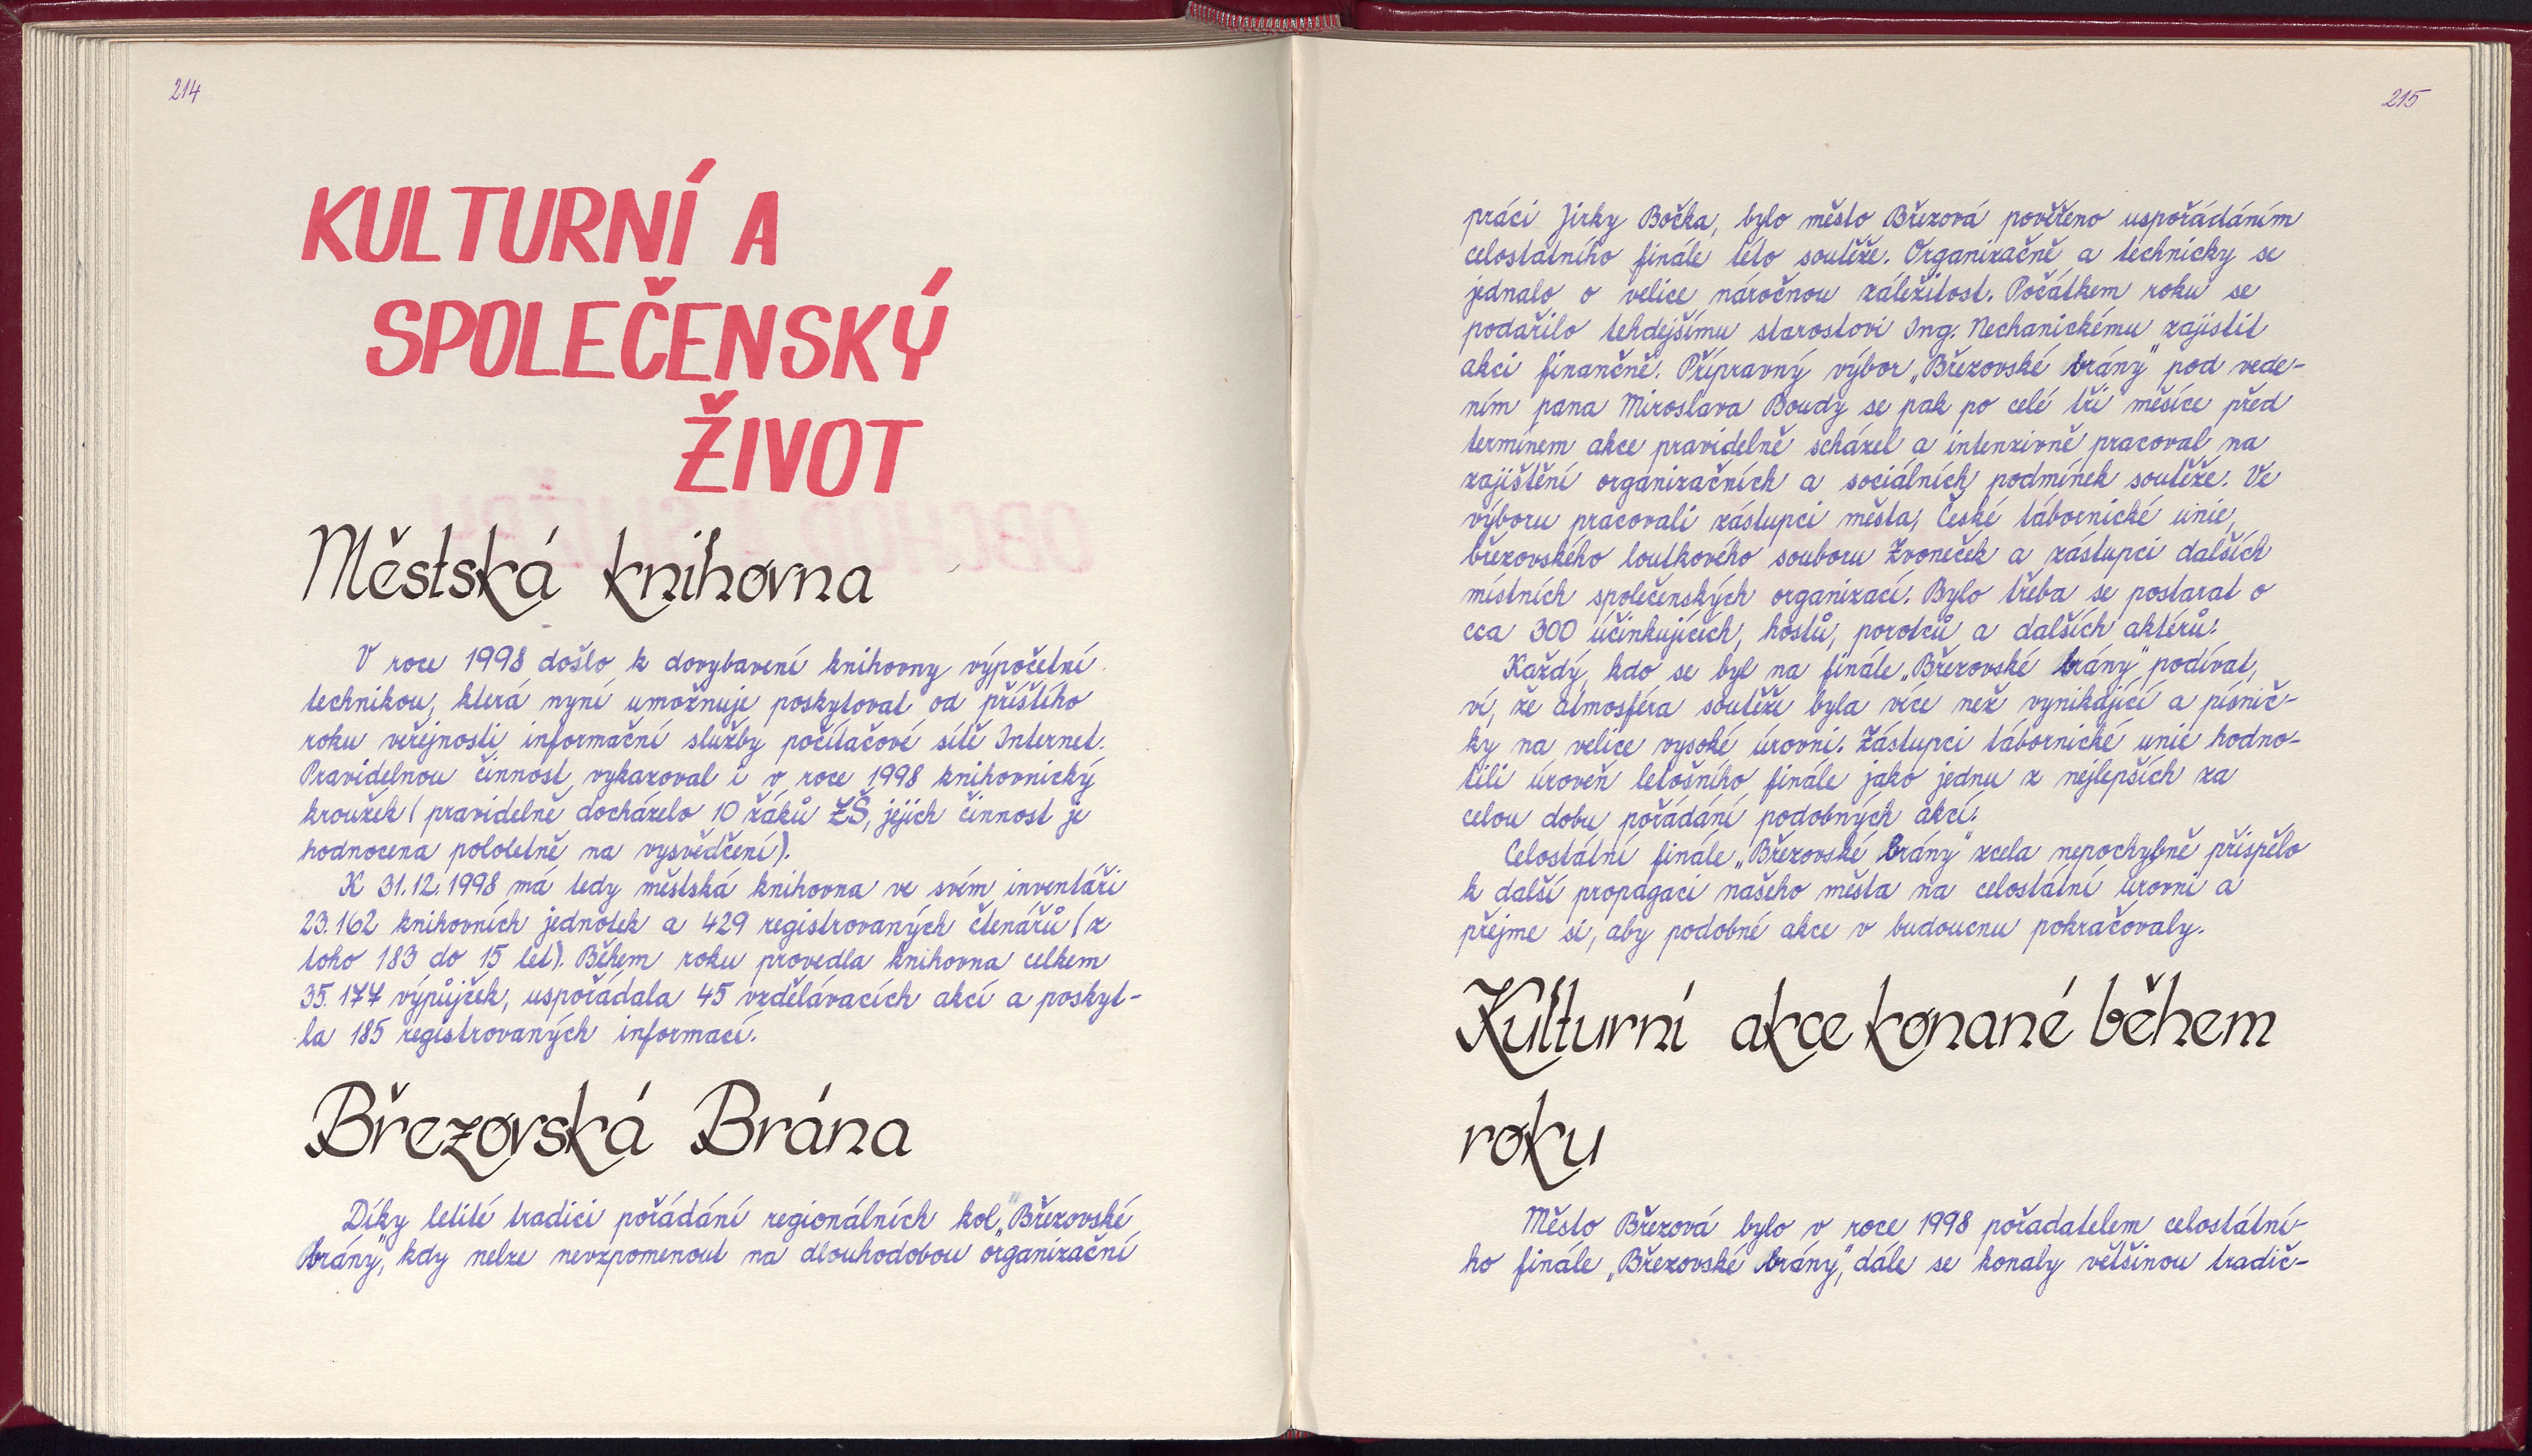 214
KULTURNÍ A
SPOLEČENSKÝ
ŽIVOT
Městská knihovna
V roce 1998 došlo k dovybavení knihovny výpočetní
technikou, která nyní umožnuje poskytovat od příštího
roku veřejnosti informační služby počítačové sítě Internet.
Pravidelnou činnost vykazoval i v roce 1998 knihovnický
kroužek (pravidelně docházelo 10 žáků ZŠ, jejich činnost je
hodnocena pololetně na vysvědčení).
K 31.12.1998 má tedy městská knihovna ve svém inventáři
23.162 knihovních jednotek a 429 registrovaných čtenářů (z
toho 183 do 15 let). Během roku provedla knihovna celkem
35.177 výpůjček, uspořádala 45 vzdělávacích akcí a poskyt-
la 185 registrovaných informací.
Březovská Brána
Díky letité tradici pořádání regionálních kol „Březovské
brány", kdy nelze nevzpomenout na dlouhodobou organizační
215
práci Jirky Bočka, bylo město Březová pověřeno uspořádáním
celostátního finále této soutěže. Organizačně a technicky se
jednalo o velice náročnou záležitost. Počátkem roku se
podařilo tehdejšímu starostovi Ing. Nechanickému zajistit
akci finančně. Přípravný výbor „Březovské brány" pod vede-
ním pana Miroslava Boudy se pak po celé tři měsíce před
termínem akce pravidelně scházel a intenzivně pracoval na
zajištění organizačních a sociálních podmínek soutěže. Ve
výboru pracovali zástupci města, České tábornické unie,
březovského loutkového souboru Zvoneček a zástupci dalších
místních společenských organizací. Bylo třeba se postarat o
cca 300 účinkujících, hostů, porotců a dalších aktérů.
Každý, kdo se byl na finále „Březovské brány" podívat,
ví, že atmosféra soutěže byla více než vynikající a písnič-
ky na velice vysoké úrovni. Zástupci tábornické unie hodno-
tili úroveň letošního finále jako jednu z nejlepších za
celou dobu pořádání podobných akcí.
Celostátní finále „Březovské brány" zcela nepochybně přispělo
k další propagaci našeho města na celostátní úrovni a
přejme si, aby podobné akce v budoucnu pokračovaly.
Kulturní akce konané během
roku
Město Březová bylo v roce 1998 pořadatelem celostátní-
ho finále „Březovské brány", dále se konaly většinou tradič-